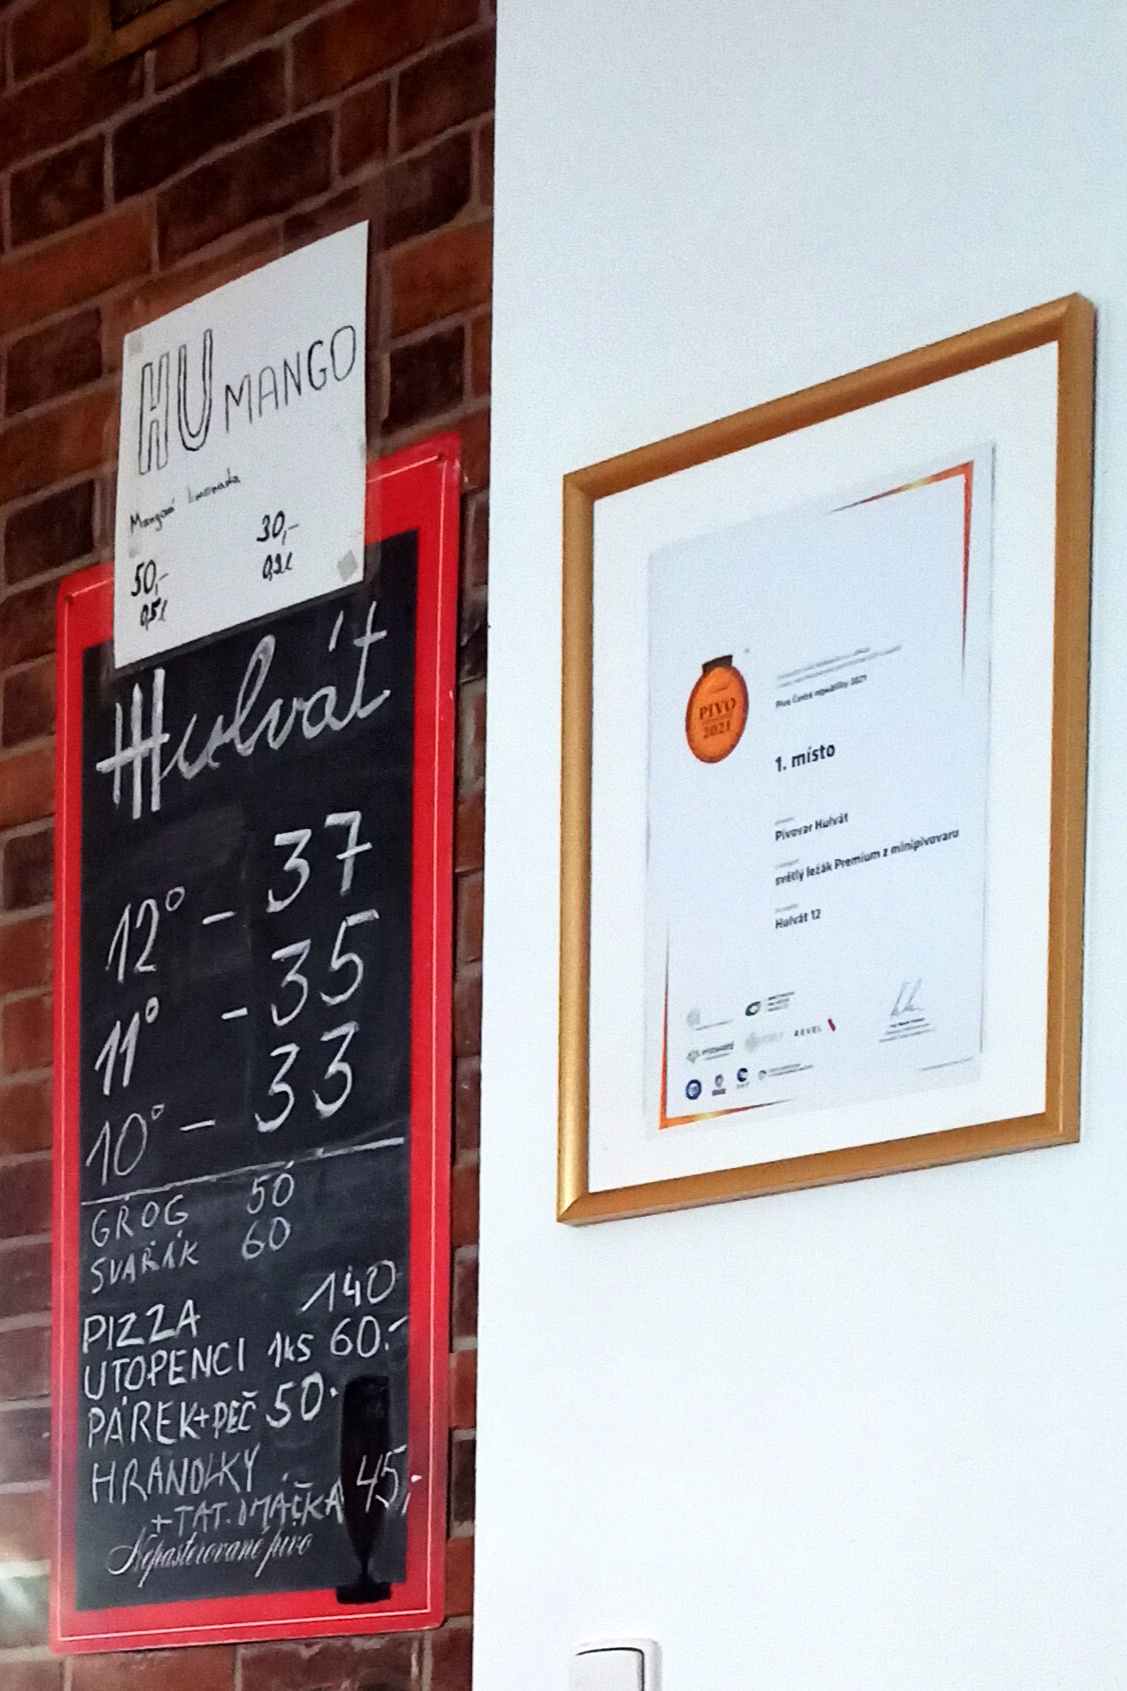 HU MANGO
Mangová limonada
50,- 30,-
0,5l 0,3l
Hulvát
12° - 37
11° - 35
10° - 33
GROG 50
SVAŘÁK 60
PIZZA 140
UTOPENCI 1ks 60.-
PÁREK+PEČ 50.
HRANOLKY
+TAT. OMÁČKA 45,-
Nepasterované pivo
PIVO
2021
Pivo České republiky 2021
1. místo
Pivovar Hulvát
světlý ležák Premium z minipivovaru
Hulvát 12
REVEL